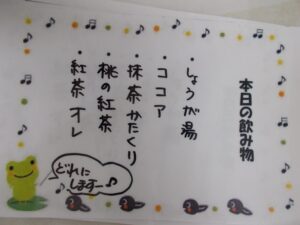 本日の飲み物
・しょうが湯
・ココア
・抹茶かたくり
・桃の紅茶
・紅茶オレ
どれに
しますー♪